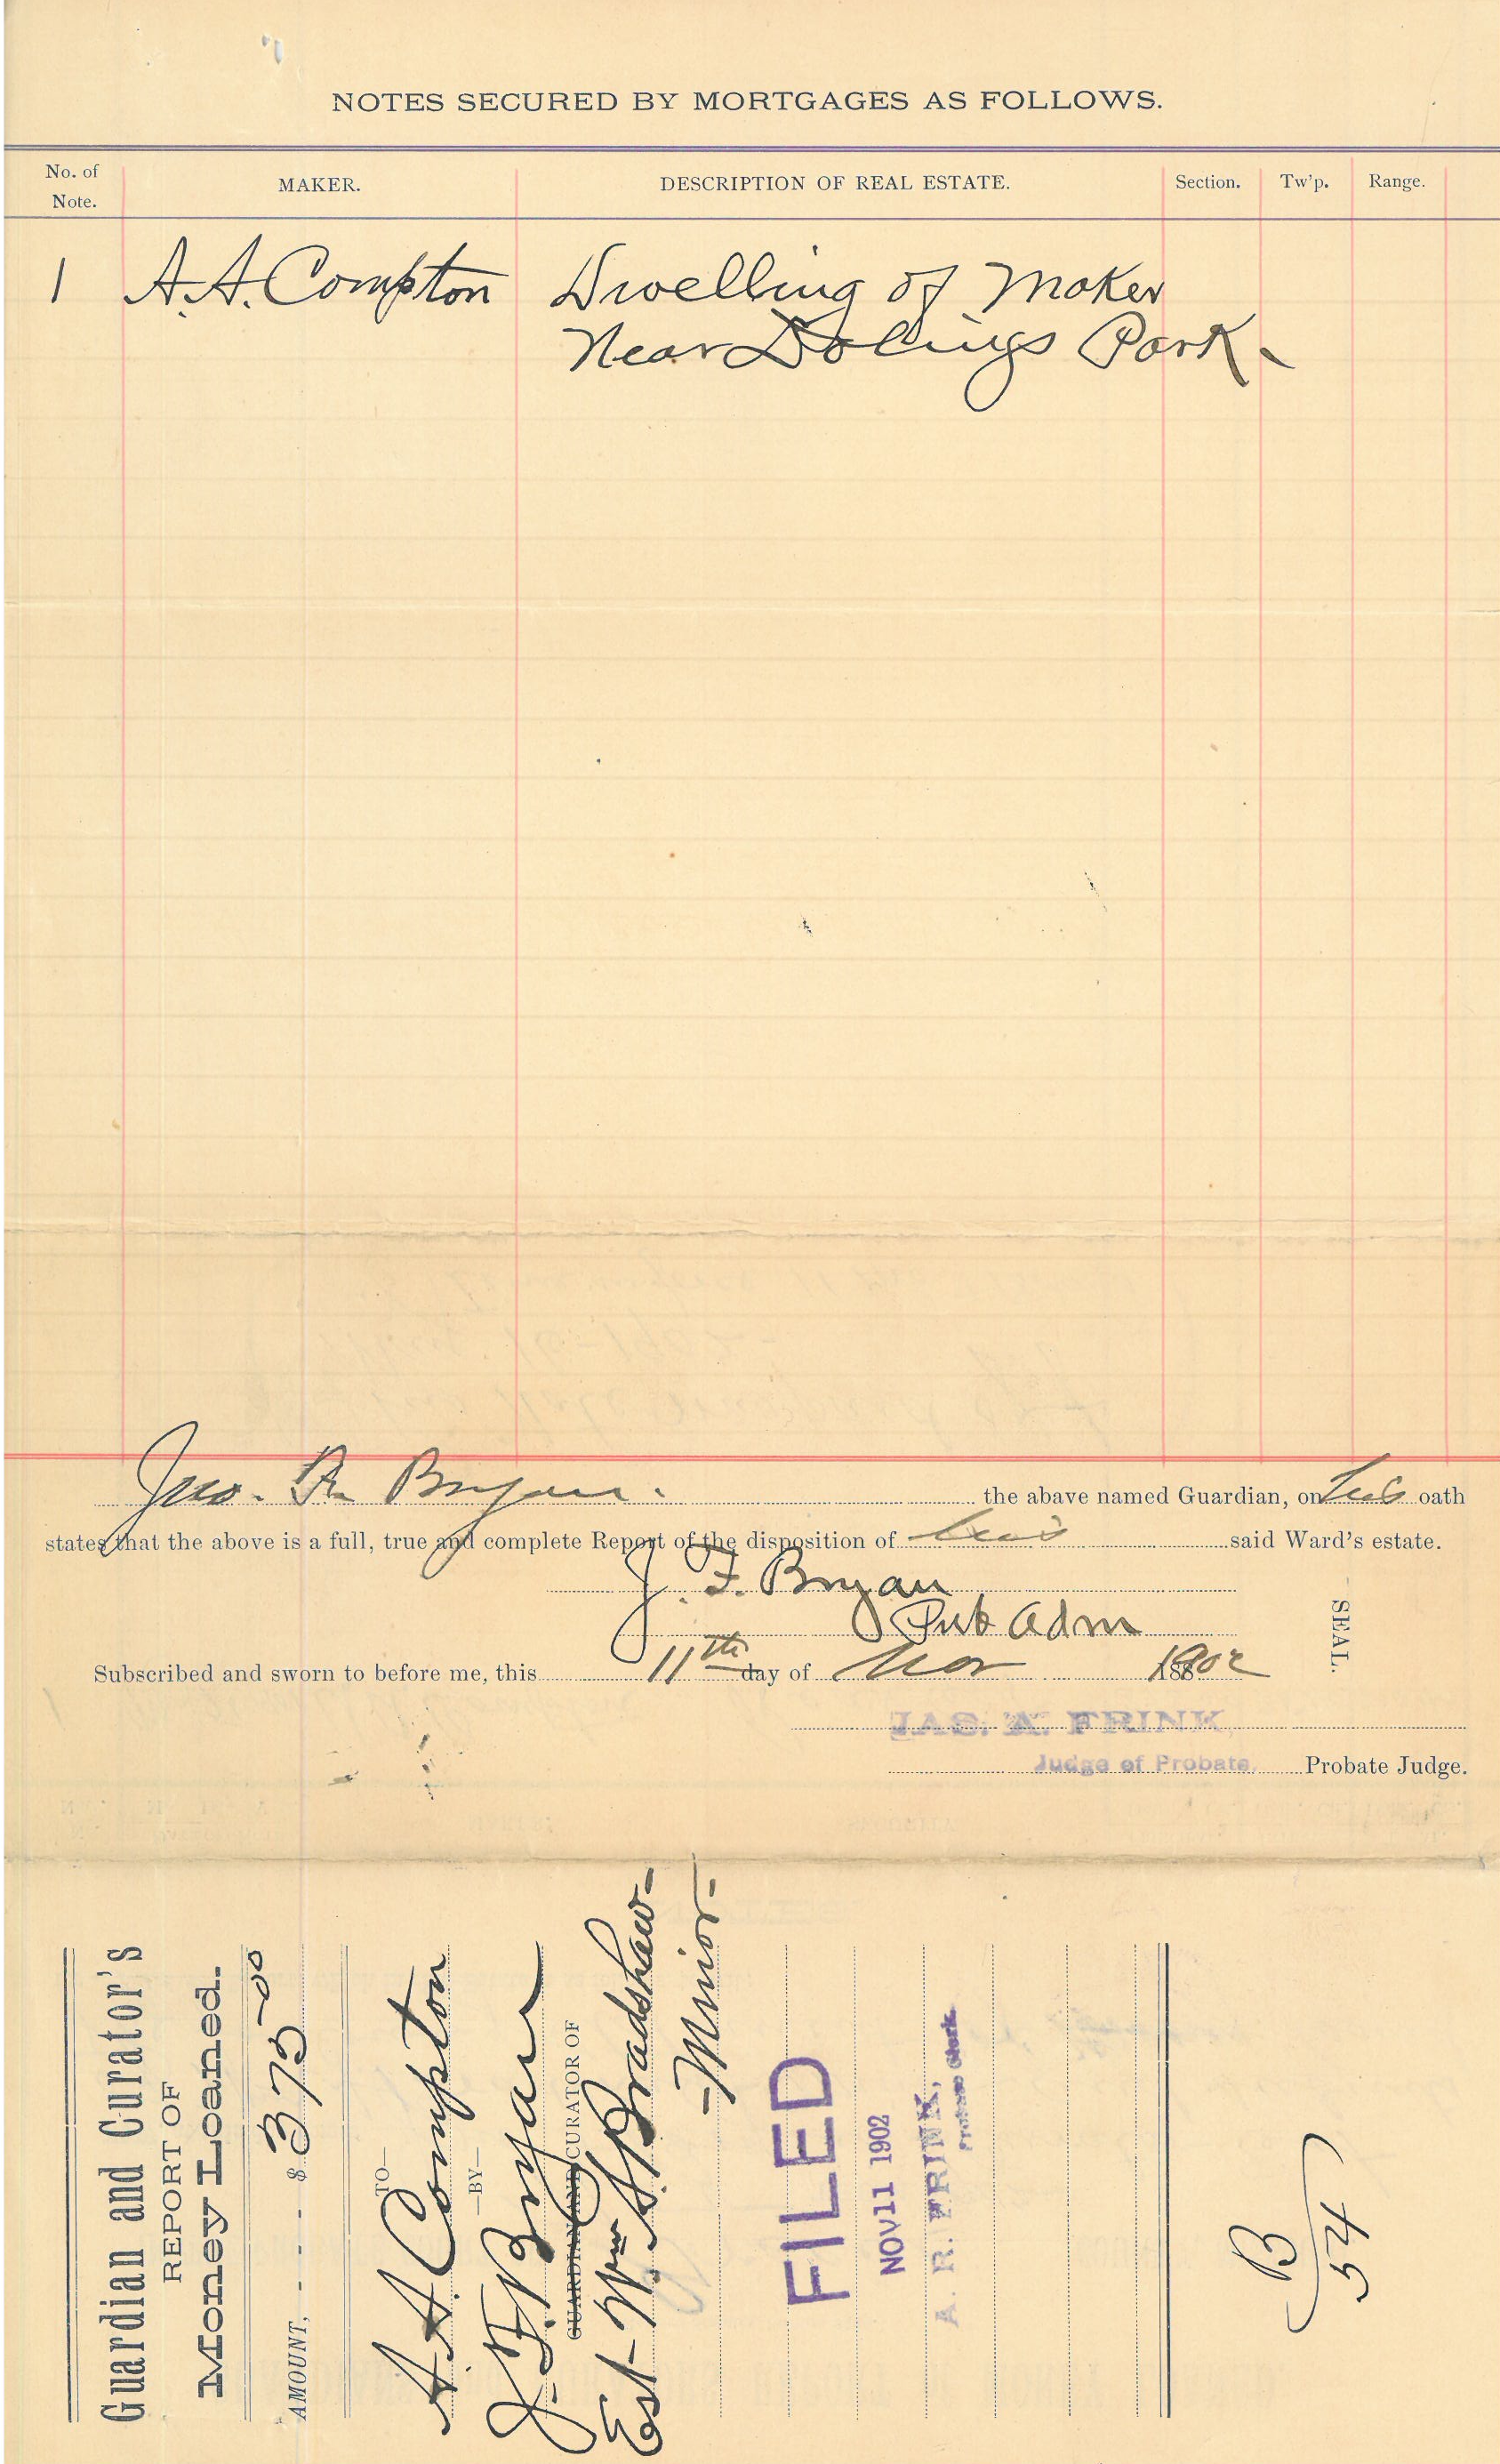 NOTES SECURED BY MORTGAGES AS FOLLOWS.
No. of Note. MAKER. DESCRIPTION OF REAL ESTATE. Section. Tw'p. Range.
1 A.A. Compton Dwelling of Maker
Near Dolings Park.
Jno. F. Bryan. the above named Guardian, on his oath
states that the above is a full, true and complete Report of the disposition of his said Ward's estate.
J. F. Bryan
Pub Adm
SEAL.
Subscribed and sworn to before me, this 11th day of Nov 1902
JAS. A. FRINK,
Judge of Probate, Probate Judge.
Guardian and Curator's
REPORT OF
Money Loaned.
AMOUNT, - - - $ 375-00
—TO—
A. A. Compton
—BY—
J. F. Bryan
GUARDIAN AND CURATOR OF
Est- Wm A. Bradshaw-
-Minor-
FILED
NOV 11 1902
A. R. FRINK,
Probate Clerk.
B
54